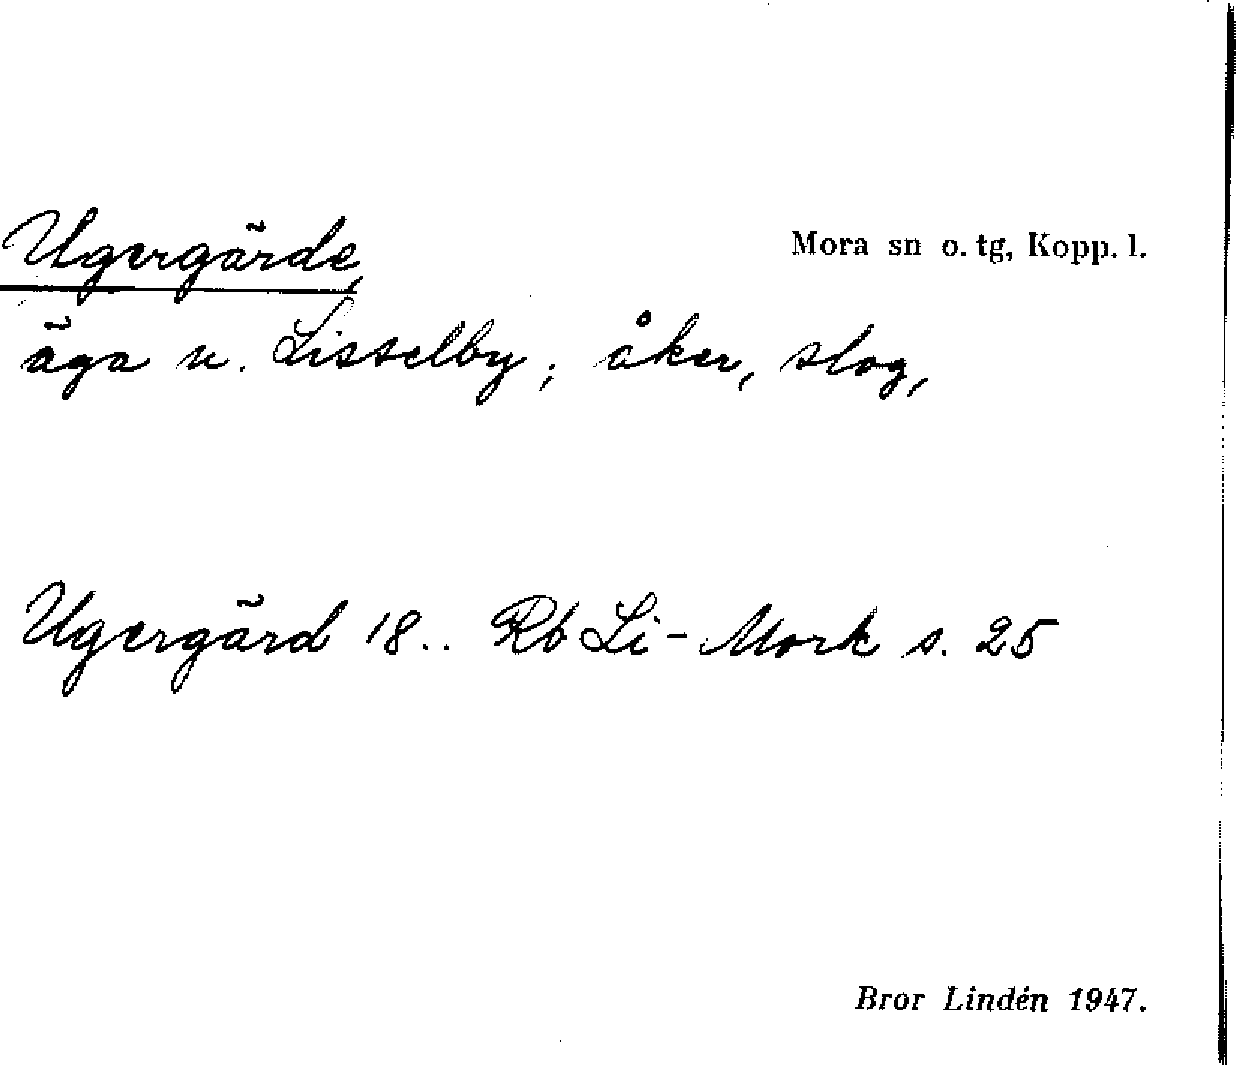 Ugergärde, Mora sn o. tg, Kopp. l.
äga u. Lisselby; åker, slog,
Ugergärd 18.. Rb Li-Mork s. 25
Bror Lindén 1947.